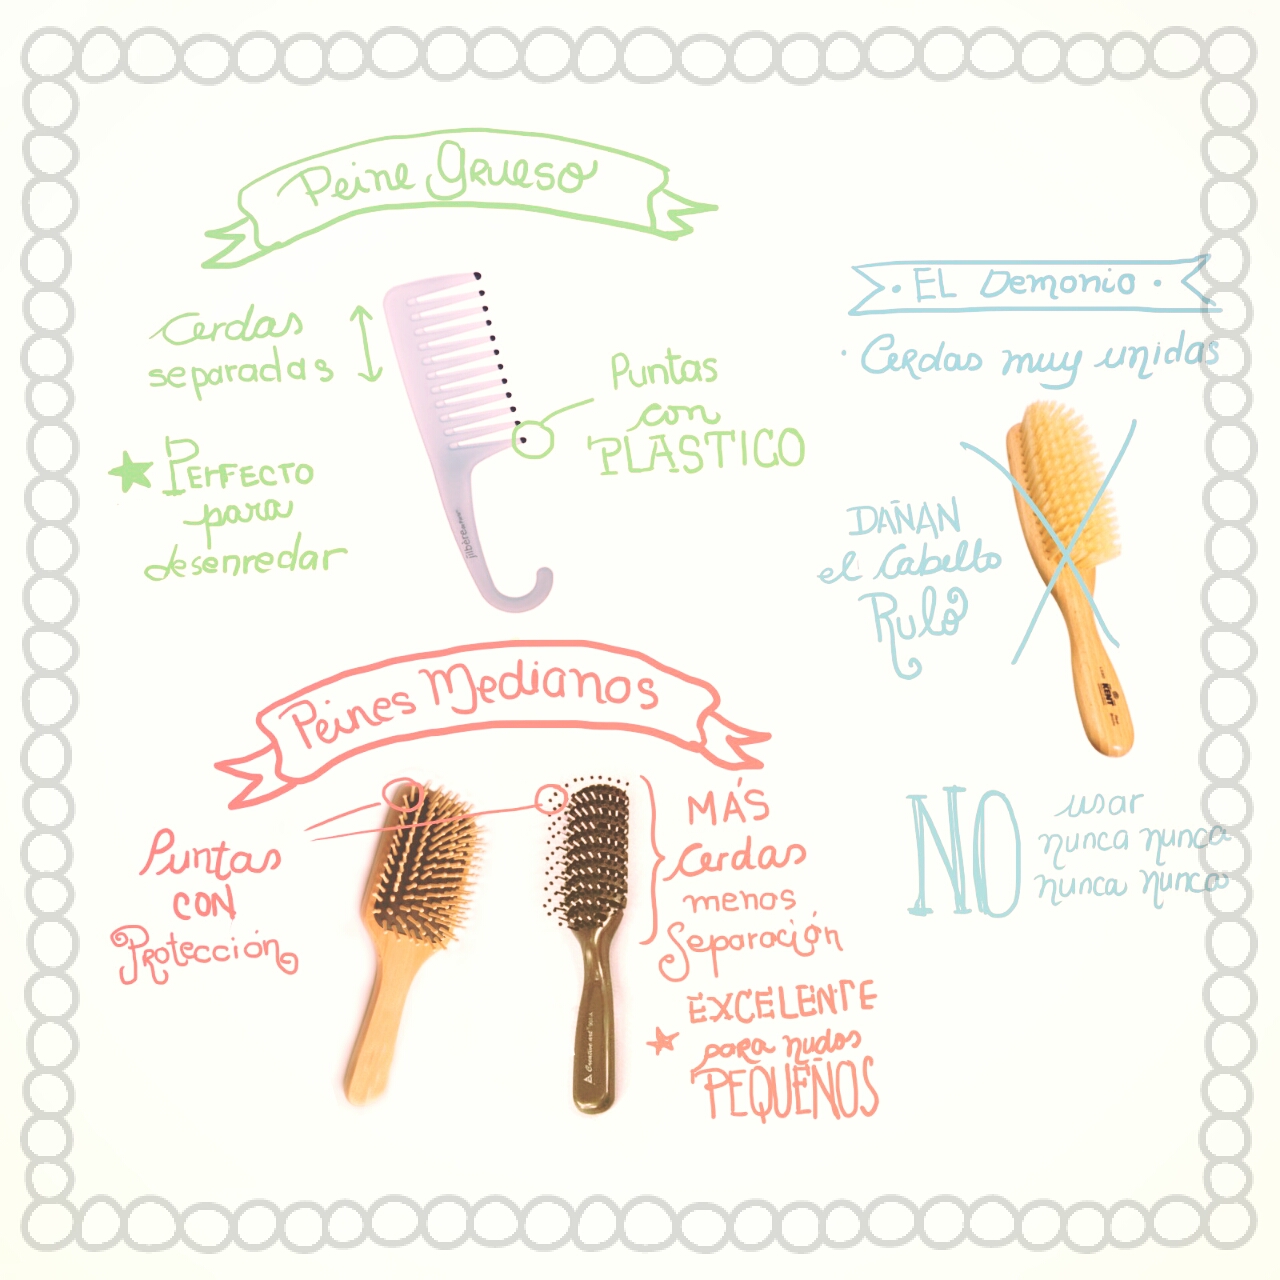 Peine Grueso
Cerdas
separadas
Puntas
con
PLASTICO
PERFECTO
para
desenredar
EL Demonio
Cerdas muy unidas
DAÑAN
el Cabello
Rulo
KENT
NO
usar
nunca nunca
nunca nunca
Peines Medianos
Puntas
CON
Protección
MÁS
Cerdas
menos
Separación
EXCELENTE
para nudos
PEQUEÑOS